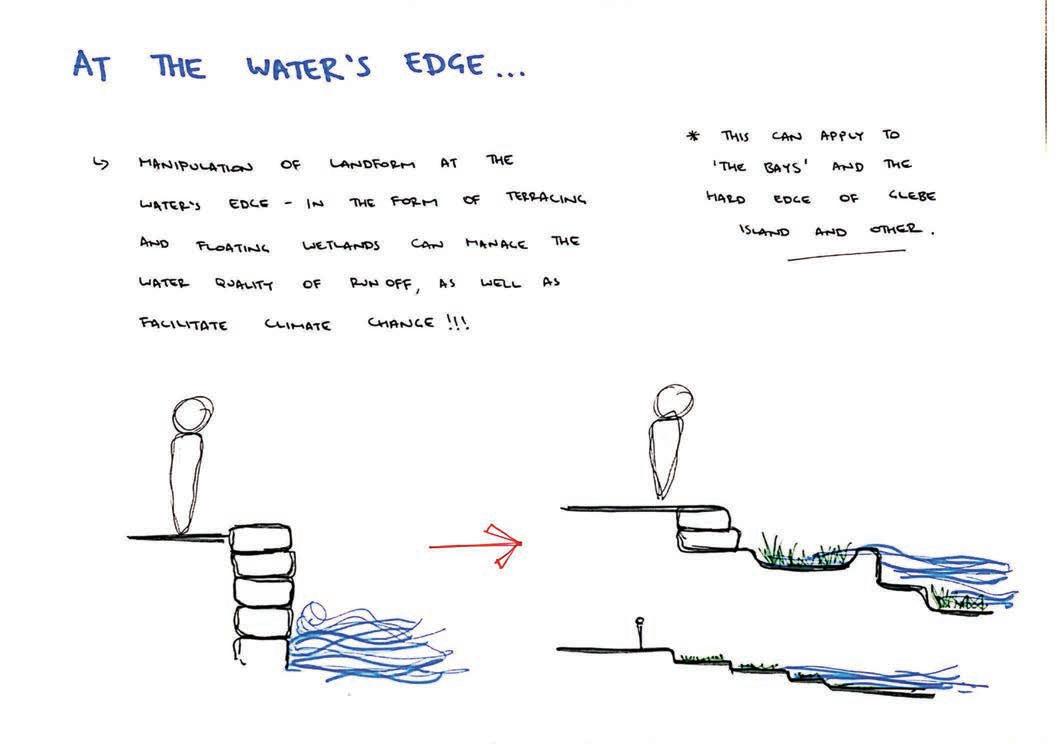 AT THE WATER'S EDGE...
↳ MANIPULATION OF LANDFORM AT THE
WATER'S EDGE - IN THE FORM OF TERRACING
AND FLOATING WETLANDS CAN MANAGE THE
WATER QUALITY OF RUN OFF, AS WELL AS
FACILITATE CLIMATE CHANGE!!!
* THIS CAN APPLY TO
'THE BAYS' AND THE
HARD EDGE OF GLEBE
ISLAND AND OTHER.